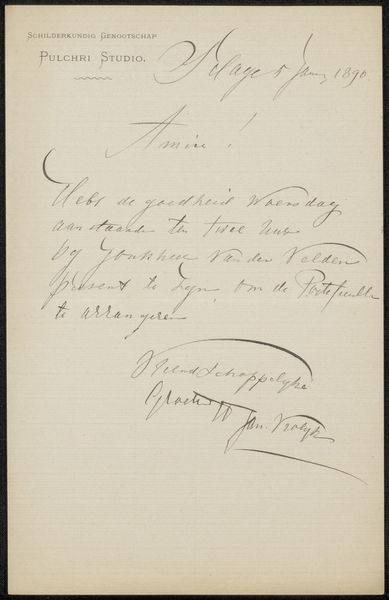 SCHILDERKUNDIG GENOOTSCHAP
PULCHRI STUDIO.
Hage 5 Jany 1890
Amice!
Hebt de goedheid Woensdag
aanstaande ten twee uur
by Jonkheer Van der Velden
present te zyn, om de Portefeuille
te arrangeren
Vriendschappelyke
Groete
Jan Vrolyk